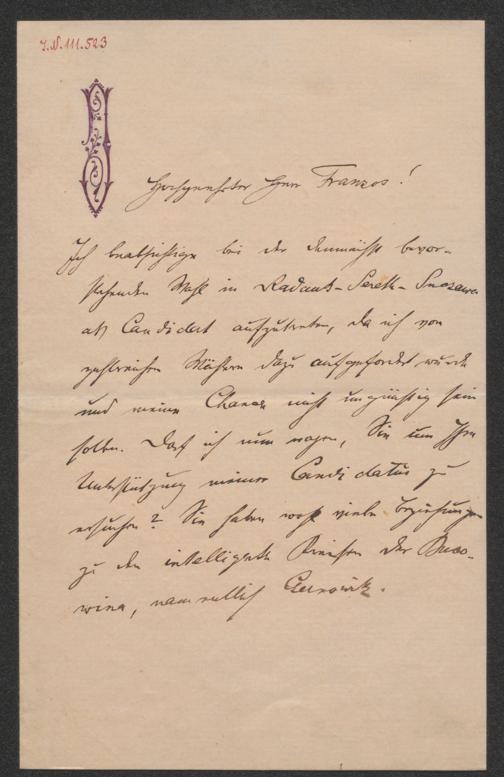 J.N. 111.523
Hochgeehrter Herr Franzos!
Ich beabsichtige bei der demnächst bevor-
stehenden Wahl in Radautz-Sereth-Suczawa
als Candidat aufzutreten, da ich von
zahlreichen Wählern dazu aufgefordert wurde
und meine Chancen nicht ungünstig sein
sollen. Darf ich nun wagen, Sie um Ihre
Unterstützung meiner Candidatur zu
ersuchen? Sie haben wohl viele Beziehungen
zu den intelligenten Kreisen der Buko-
wina, namentlich Czernowitz.